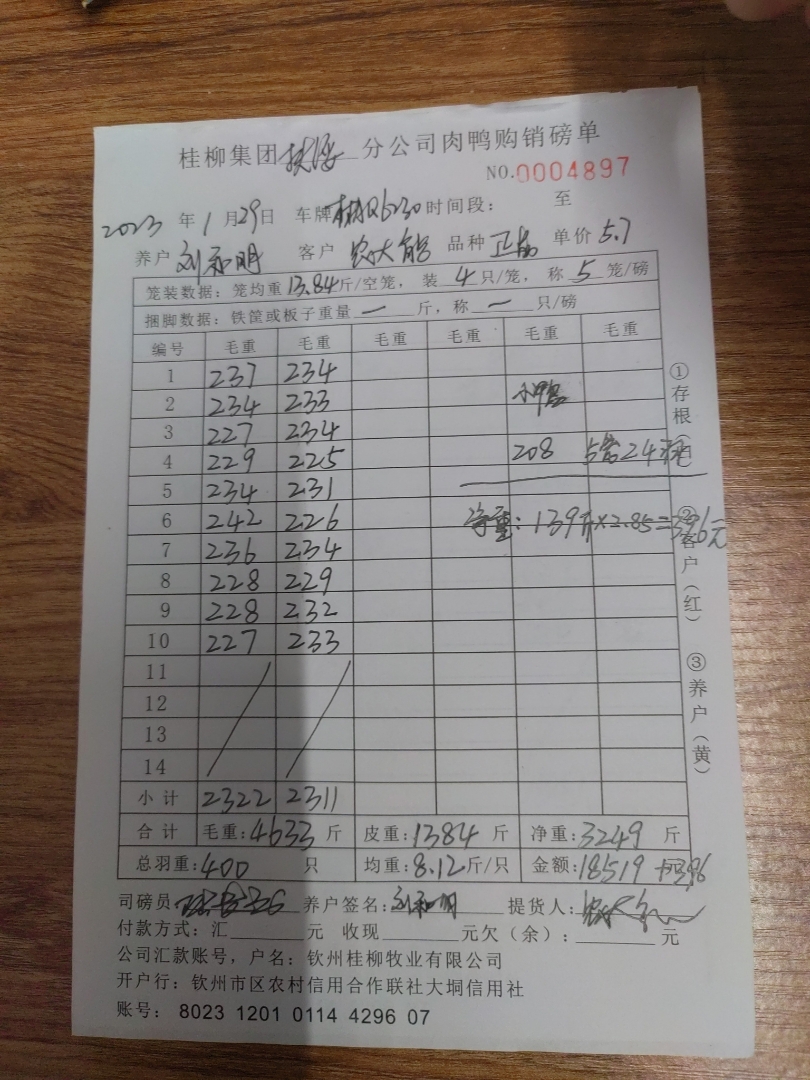 桂柳集团扶绥分公司肉鸭购销磅单
NO.0004897
2023年1月29日 车牌 时间段： 至
养户 刘和明 客户 农大能 品种 正品 单价 5.7
笼装数据：笼均重13.84斤/空笼，装 4 只/笼，称 5 笼/磅
捆脚数据：铁筐或板子重量 — 斤，称 — 只/磅
编号 毛重 毛重 毛重 毛重 毛重 毛重
1 237 234
2 234 233 小鸭
3 227 234
4 229 225 208 5笼24只
5 234 231
6 242 226 净重：139斤×2.85=396元
7 236 234
8 228 229
9 228 232
10 227 233
11
12
13
14
小计 2322 2311
合计 毛重：4633 斤 皮重：1384 斤 净重：3249 斤
总羽重：400 只 均重：8.12斤/只 金额：18519 +396
①存根（白）
②客户（红）
③养户（黄）
司磅员 养户签名：刘和明 提货人：
付款方式：汇 元 收现 元欠（余）： 元
公司汇款账号，户名：钦州桂柳牧业有限公司
开户行：钦州市区农村信用合作联社大垌信用社
账号：8023 1201 0114 4296 07